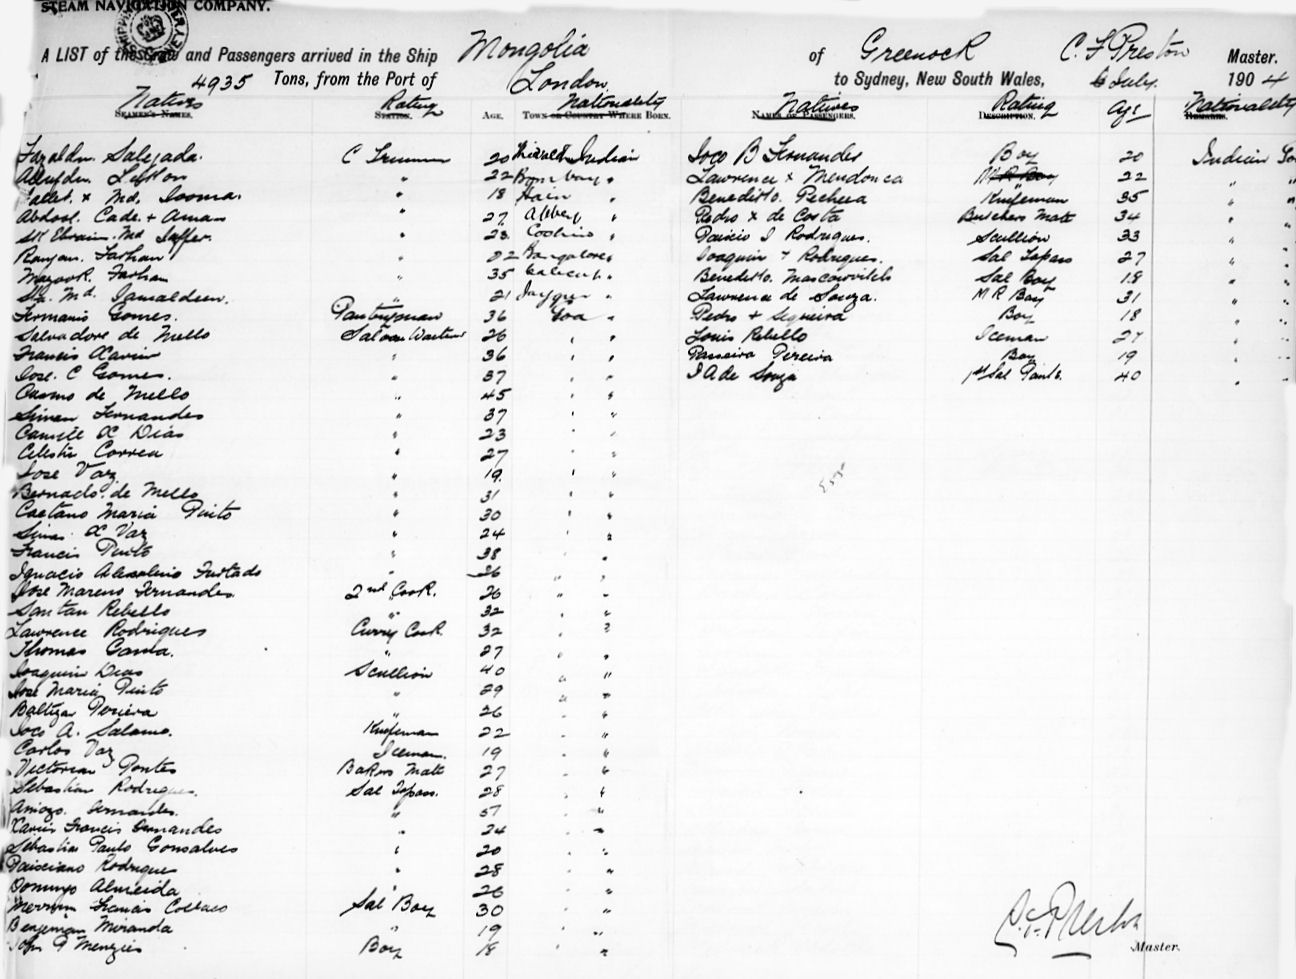 STEAM NAVIGATION COMPANY.
A LIST of the Crew and Passengers arrived in the Ship Mongolia of Greenock C. F. Preston Master.
4935 Tons, from the Port of London to Sydney, New South Wales, 6 July 1904
Natives Rating Nationality Natives Rating Age Nationality
SEAMEN'S NAMES. STATION. AGE. TOWN OR COUNTRY WHERE BORN. NAMES OF PASSENGERS. DESCRIPTION. REMARKS.
C Trimmer 20 Indian Joco B Fernandes Boy 20 Indian Goa
" 22 Bombay " Lawrence x Mendonca M R Boy 22 " "
x Md. Jooma. " 18 " Beneditto. Pecheca Knifeman 35 " "
Abdool. Cade. + " 27 " Pedro x de Costa Butchers Mate 34 " "
Sk Ebraim. Md Jaffer. " 23 Cochin " J Rodrigues. Scullion 33 " "
Farhan " Bangalore " Joaquim Rodrigues. Sal Topass 27 " "
Farhan " 35 Calicut " Beneditto. Sal Boy 18 " "
Md. Jamaldeen. " 21 " Lawrence de Souza. M R Boy 31 " "
Gomes. Pantryman 36 Goa " Pedro + Sequeira Boy 18 " "
Salvadore de Mello Saloon Waiter 26 " " Louis Rebello Iceman 27 " "
Francis Xavier " 36 " " Pereira Boy 19 " "
Jose. C Gomes. " 37 " " J A de Souza 1st Sal Pantr. 40 " "
Cosmo de Mello " 45 " "
Simon Fernandes " 37 " "
Camilo X Dias " 23 " "
Celestin Correa " 27 " "
Jose Vaz " 19 " "
Bernado. de Mello " 31 " "
Caetano Maria Pinto " 30 " "
X Vaz " 24 " "
Francis Pinto " 38 "
Ignacio Furtado " 26 " "
Jose Mareno Fernandes. 2nd Cook. 26 " "
Santan Rebello " 32 "
Lawrence Rodrigues Curry Cook. 32 "
Thomas Gama. " 27 " "
Joaquim Dias Scullion 40 " "
Jose Maria Pinto " 29 " "
Baltizar Pereira " 26 " "
Joco A. Salamo. Knifeman 22 "
Carlos Vaz Iceman. 19 " "
Victorian Pontes Bakers Mate 27 " "
Sebastian Rodrigues. Sal Topass. 28 " "
Fernandes. " 37 "
Xavier Francis Fernandes " 24 " "
Sebastian Paulo Gonsalves " 20 " "
Rodrigues " 28 " "
Domingo Almeida " 26 " "
Francis Collaco Sal Boy 30 " "
Benjeman Miranda " 19 " "
John G Menzies Boy 18 "
C. F. Preston
Master.